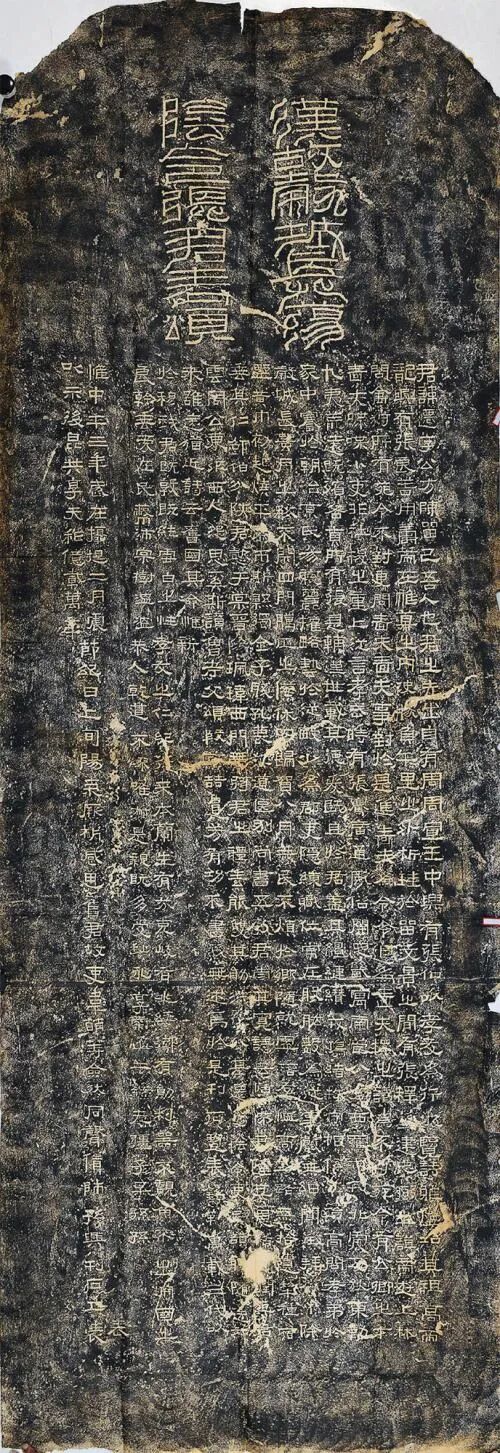 漢故穀城長蕩
陰令張君表頌
君諱遷字公方陳留己吾人也君之先出自有周周宣王中興有張仲以孝友爲行披覽詩雅煥知其祖高帝
龍興有張良善用籌策在帷幕之內決勝負千里之外析珪於留文景之間有張釋之建忠弼之謨帝遊上林
問禽狩所有苑令不對更問嗇夫嗇夫事對於是進嗇夫爲令令退爲嗇夫釋之議爲不可苑令有公卿之才
嗇夫喋喋小吏非社稷之重上從言孝武時有張騫廣通風俗開定畿寓南苞八蠻西羈六戎北震五狄東勤
九夷荒遠既殯各貢所有張是輔漢世載其德爰既且於君蓋其繵縺纘戎鴻緒牧守相係不殞高問孝弟於
家中謇於朝治京氏易聰麗權略藝於從畋少爲郡吏隱練職位常在股肱數爲從事聲無細聞徵拜郎中除
穀城長蠶月之務不閉四門臘正之僚休囚歸賀八月算民不煩於鄉隨就虛落存恤高年路無拾遺犁種宿
野黃巾初起燒平城市斯縣獨全子賤孔蔑其道區別尚書五教君崇其寬詩云愷悌君隆其恩東里潤色君
垂其仁邵伯分陝君懿于棠晉陽珮瑋西門帶弦君之體素能雙其勛流化八基遷蕩陰令吏民頡頏隨送如
雲周公東征西人怨思奚斯讚魯考父頌殷前喆遺芳有功不書後無述焉於是刊石豎表銘勒萬載三代以
來雖遠猶近詩云舊國其命惟新
於穆我君既敦既純雪白之性孝友之仁紀行來本蘭生有芬克岐有兆綏御有勛利器不覿魚不出淵國之
良幹垂愛在民蔽沛棠樹溫溫恭人乾道不繆唯淑是親既多受祉永享南山干祿無疆子子孫孫
惟中平三年歲在攝提二月震節紀日上旬陽氣厥析感思舊君故吏韋萌等僉然同聲賃師孫興刊石立表
以示後昆共享天祚億載萬年